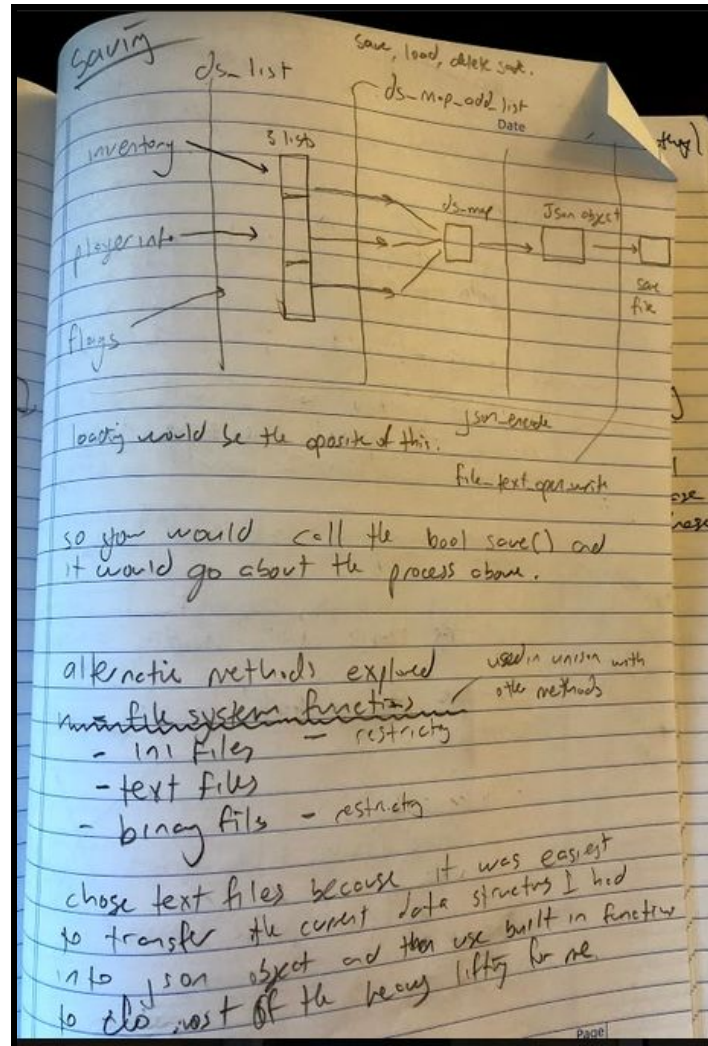 saving
save, load, delete save.
ds_list
ds_map_add_list
Date
inventory
3 lists
ds_map
Json object
player info
save
file
flags
json_encode
loading would be the oposite of this.
file_text_open_write
so you would call the bool save() and
it would go about the process above.
alternatie methods explored
used in unison with
other methods
- file system functions
- ini files - restricty
- text files
- binay fils - restricty
chose text files because it was easiest
to transfer the current data structurs I had
into json object and then use built in functions
to do most of the heavy lifting for me.
Page